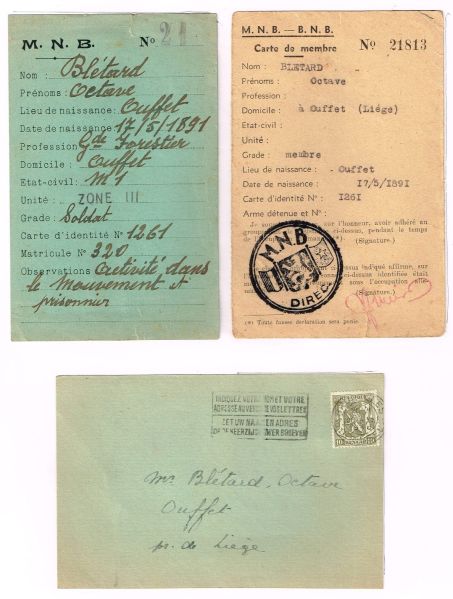 M. N. B. No 21
Nom : Blétard
Prénoms : Octave
Lieu de naissance : Ouffet
Date de naissance : 17/5/1891
Profession : Gde Forestier
Domicile : Ouffet
Etat-civil : M 1
Unité : ZONE III
Grade : Soldat
Carte d'identité No 1261
Matricule No 320
Observations Activité dans
le Mouvement
prisonnier
M. N. B. — B. N. B.
Carte de membre No 21813
Nom : BLETARD
Prénoms : Octave
Profession :
Domicile : à Ouffet (Liége)
Etat-civil :
Unité :
Grade : membre
Lieu de naissance : Ouffet
Date de naissance : 17/5/1891
Carte d'identité No : 1261
Arme détenue et No :
Je l'honneur, avoir adhéré au
ci-dessus, pendant le temps
(Signature.)
M.N.B
DIREC
ci-dessus indiqué affirme, sur
ci-dessus identifiée était
sous l'occupation
(Signature.)
(*) Toute fausse déclaration sera punie.
INDIQUEZ VOTRE NOM ET VOTRE
ADRESSE AU VERSO DE VOS LETTRES
ZET UW NAAM EN ADRES
OP DE KEERZIJDE UWER BRIEVEN
BELGIQUE
10 10
Mr Blétard, Octave
Ouffet
pr. de Liège